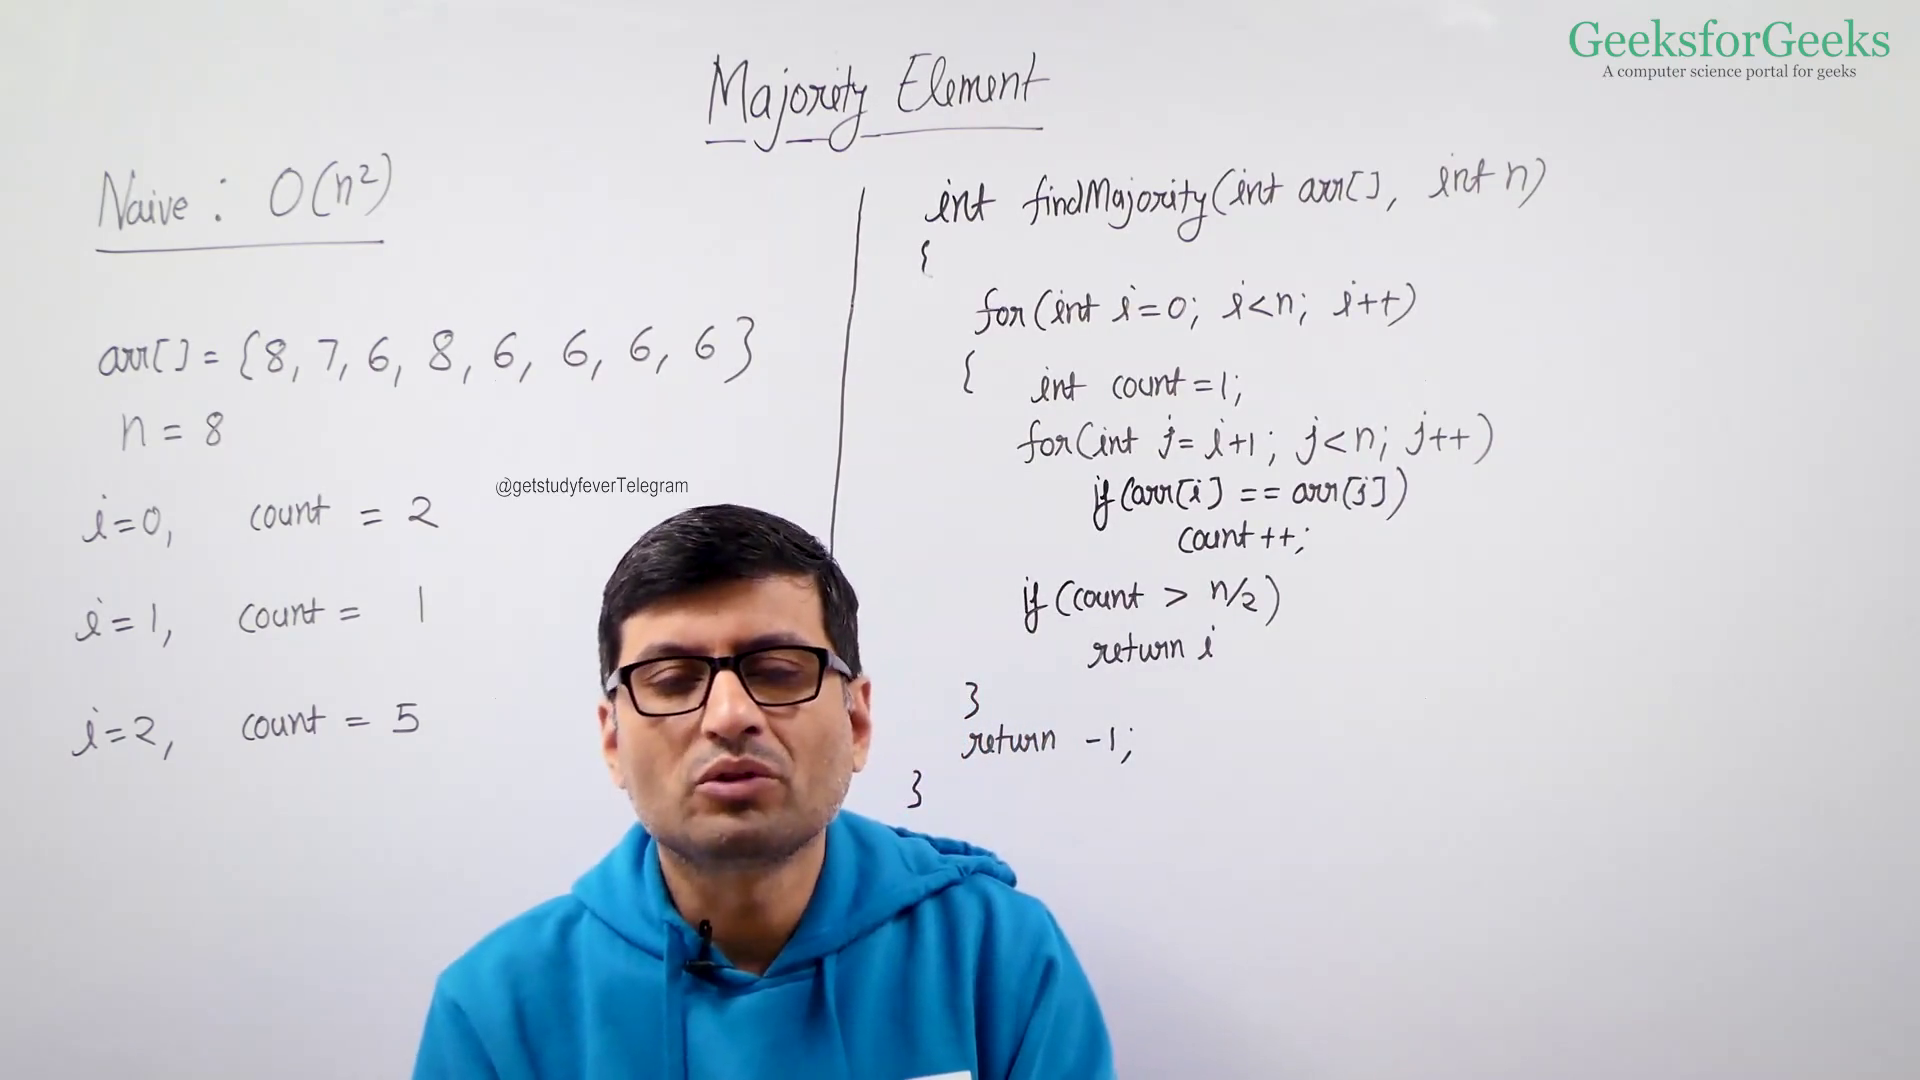 GeeksforGeeks
A computer science portal for geeks
Majority Element
Naive : O(n²)
arr[] = {8, 7, 6, 8, 6, 6, 6, 6}
n = 8
i=0, count = 2
i=1, count = 1
i=2, count = 5
@getstudyfeverTelegram
int findMajority(int arr[], int n)
{
for(int i=0; i<n; i++)
{ int count=1;
for(int j=i+1; j<n; j++)
if(arr[i] == arr[j])
count++;
if(count > n/2)
return i
}
return -1;
}